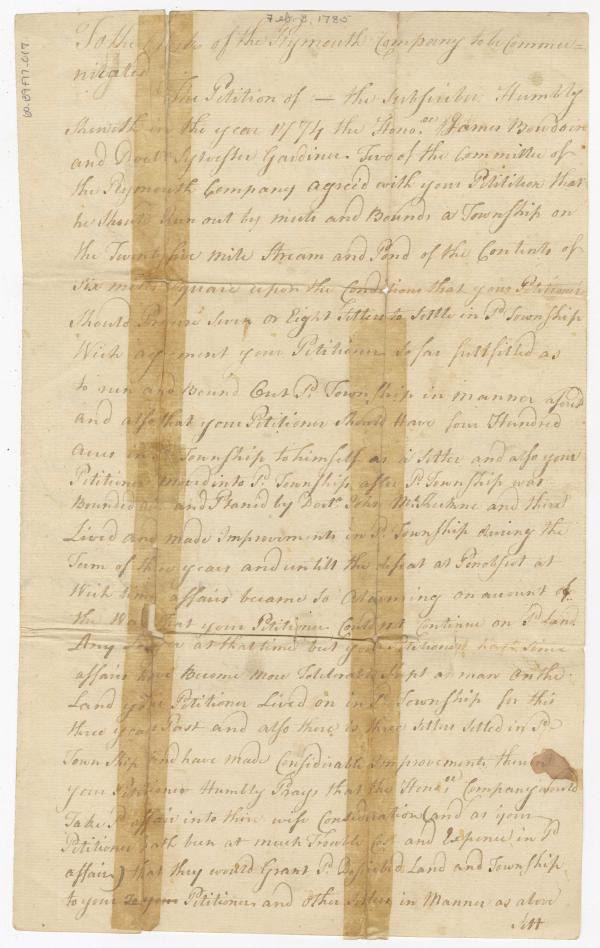 Feb. 3, 1785
60.89.F17.017
To the Clerk of the Plymouth Company to be Commu=
nicated
The Petition of — the Subscriber Humbly
Sheweth in the year 1774 the Honō.ble James Bowdoin
and Doctr. Sylvester Gardiner. Two of the Committee of
the Plymouth Company agreed with your Petitition that
he Should Run out by meets and Bounds a Township on
the Twenty five mile Stream and Pond of the Contents of
Six miles Square upon the Conditions that your Petitioner
Should Procure Seven or Eight Settlers to Settle in Sd. Township
Wich agreement your Petitioner so far fullfilled as
to run and Bound Out Sd. Township in manner aforesd
and also that your Petitioner should Have four Hundred
acres in Sd. Township to himself as a Setler and also your
Petitioner moved into Sd. Township after Sd. Township was
Bounded and Planed by Doctr. John McKechne and there
Lived and made Improvements in Sd. Township during the
Term of three years and untill the defeat at Penobscot at
Wich time affairs became so Alarming on account of
the War that your Petitioner Could not Continue on Sd. Land
Any longer at that time but your Petitioner hath Since
affairs have Become more Tolerable Kept a man on the
Land your Petitioner Lived on in Sd. Township for this
three years Past and also there is three Setlers Setled in Sd.
Township and have made Considirable Improvements therin
your Petitioner Humbly Prays that the Honō.ble Company would
Take Sd. affair into there wise Consideration (and as your
Petitioner hath been at much Trouble Cost and Expence in Sd.
affair) that they would Grant Sd. Described Land and Township
to your Petitioner and other Setlers in Manner as above